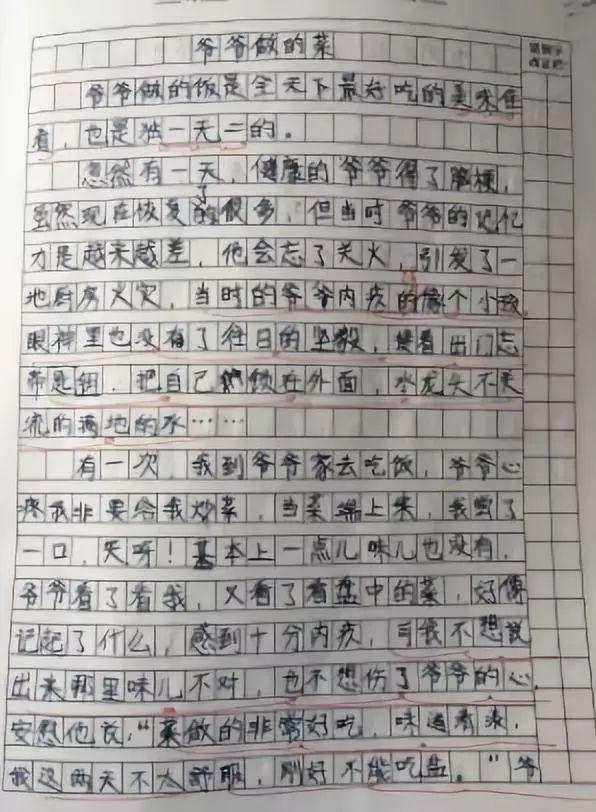 爷爷做的菜
爷爷做的饭是全天下最好吃的美味佳
肴，也是独一无二的。
忽然有一天，健康的爷爷得了脑梗，
虽然现在恢复了的很多，但当时爷爷的记忆
力是越来越差，他会忘了关火，引发了一
地厨房火灾，当时的爷爷内疚的像个小孩
眼神里也没有了往日的坚毅，接着出门忘
带匙钥，把自己锁在外面，水龙头不关
流的满地的水……
有一次，我到爷爷家去吃饭，爷爷心
疼我非要给我炒菜，当菜端上来，我尝了
一口，天呀！基本上一点儿味儿也没有，
爷爷看了看我，又看了看盘中的菜，好像
记起了什么，感到十分内疚，可我不想说
出来那里味儿不对，也不想伤了爷爷的心，
安慰他说：“菜做的非常好吃，味道有淡，
我这两天不太舒服，刚好不能吃盐。”爷